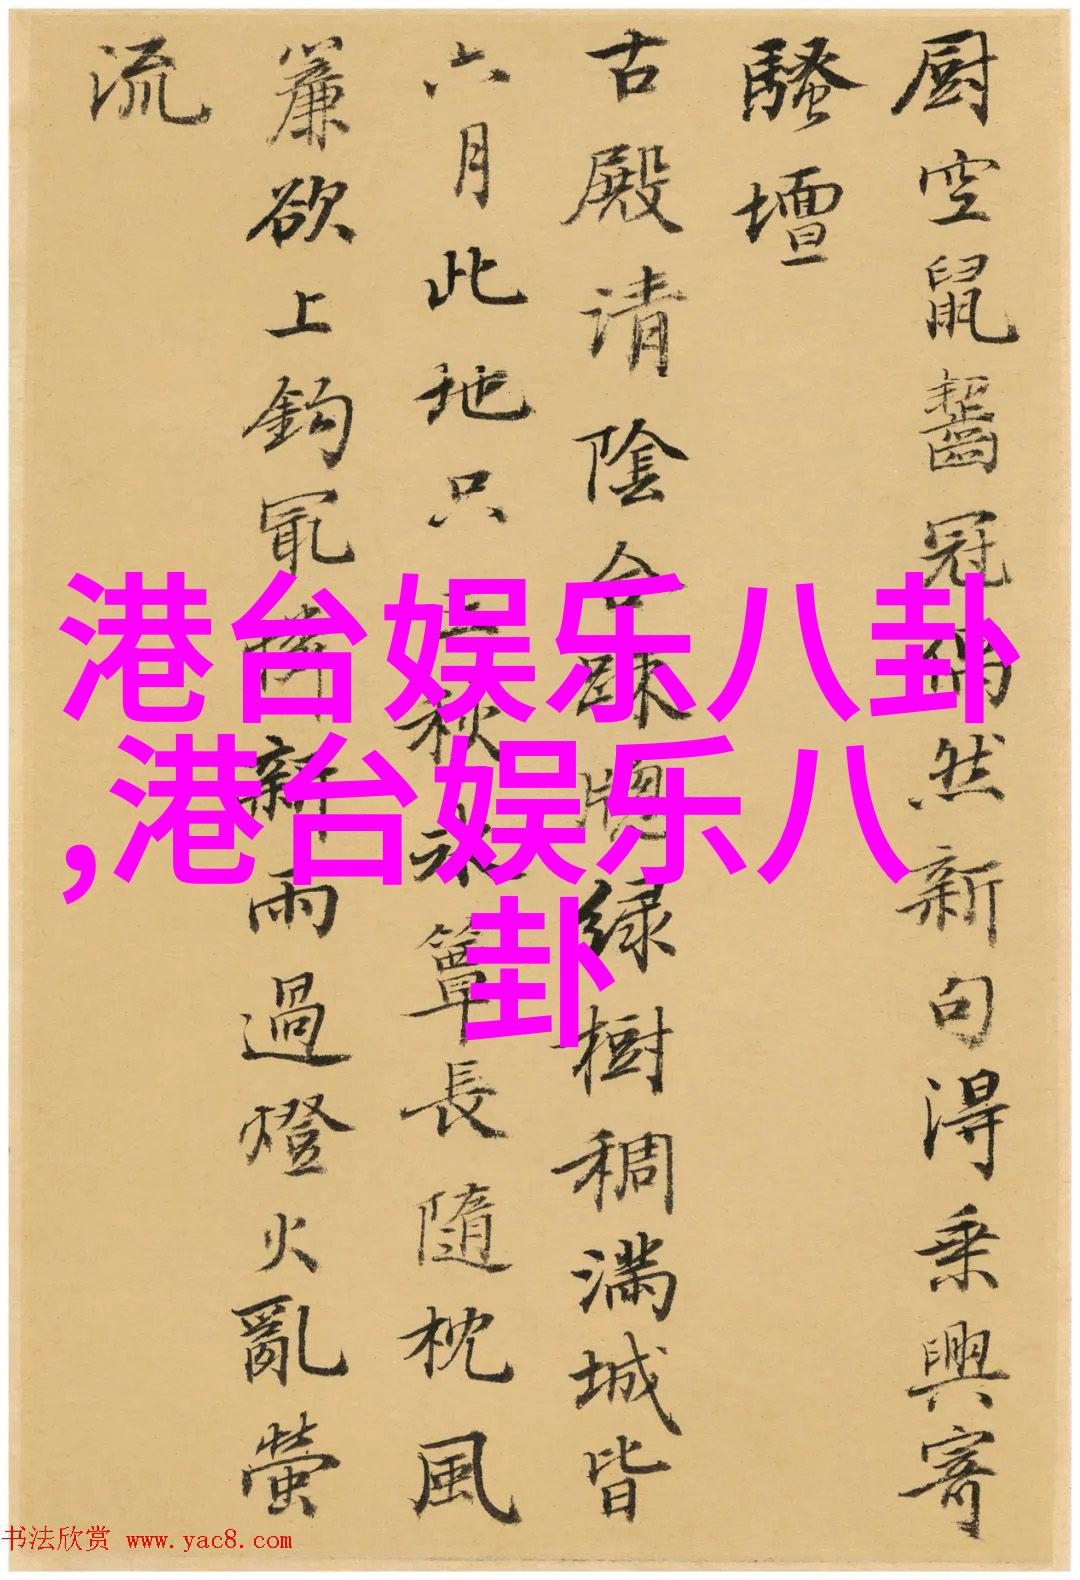 厨空鼠齧冠偶然新句得乘興寄
騷壇
古殿清陰合疎牕綠樹稠滿城皆
六月此地只三秋水簟長隨枕風
簾欲上鈎最憐新雨過燈火亂螢
流
港台娱乐八卦
,港台娱乐八
卦
书法欣赏 www.yac8.com